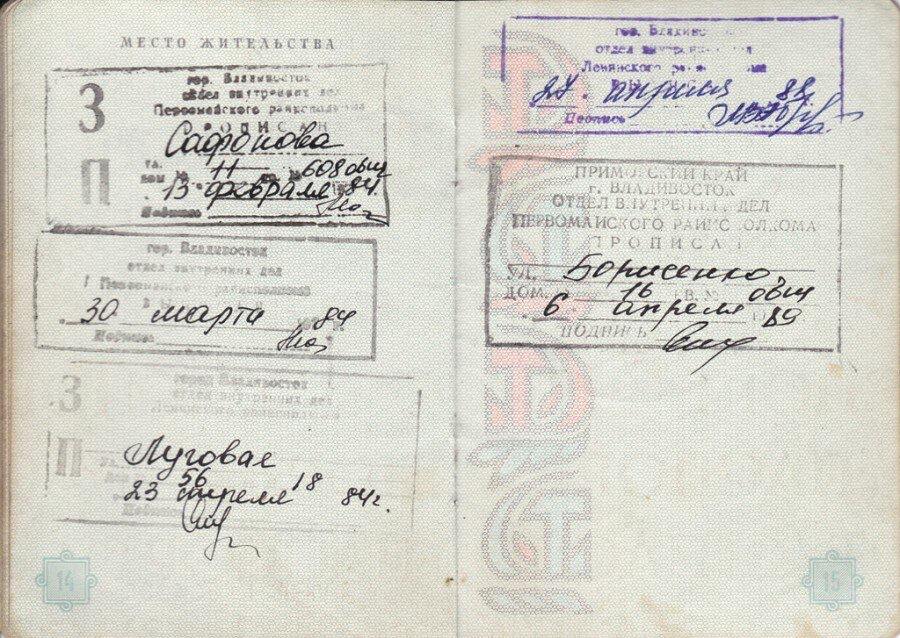 МЕСТО ЖИТЕЛЬСТВА
З
П
гор. Владивосток
отдел внутренних дел
Первомайского райисполкома
ПРОПИСАН
Сафонова
ул.
дом № 11 608 общ
13 февраля 84
Подпись
гор. Владивосток
отдел внутренних дел
Первомайского райисполкома
30 марта 1984 г.
Подпись
З
П
город Владивосток
отдел внутренних дел
Ленинского райисполкома
Луговая
56 18
23 апреля 84г.
Подпись
14
гор. Владивосток
отдел внутренних дел
Ленинского райисполкома
27 апреля 88
Подпись
ПРИМОРСКИЙ КРАЙ
г. ВЛАДИВОСТОК
ОТДЕЛ ВНУТРЕННИХ ДЕЛ
ПЕРВОМАЙСКОГО РАЙИСПОЛКОМА
ПРОПИСАН
УЛ. Борисенко,
ДОМ. 16 КВ. общ
6 апреля 1989
ПОДПИСЬ
15